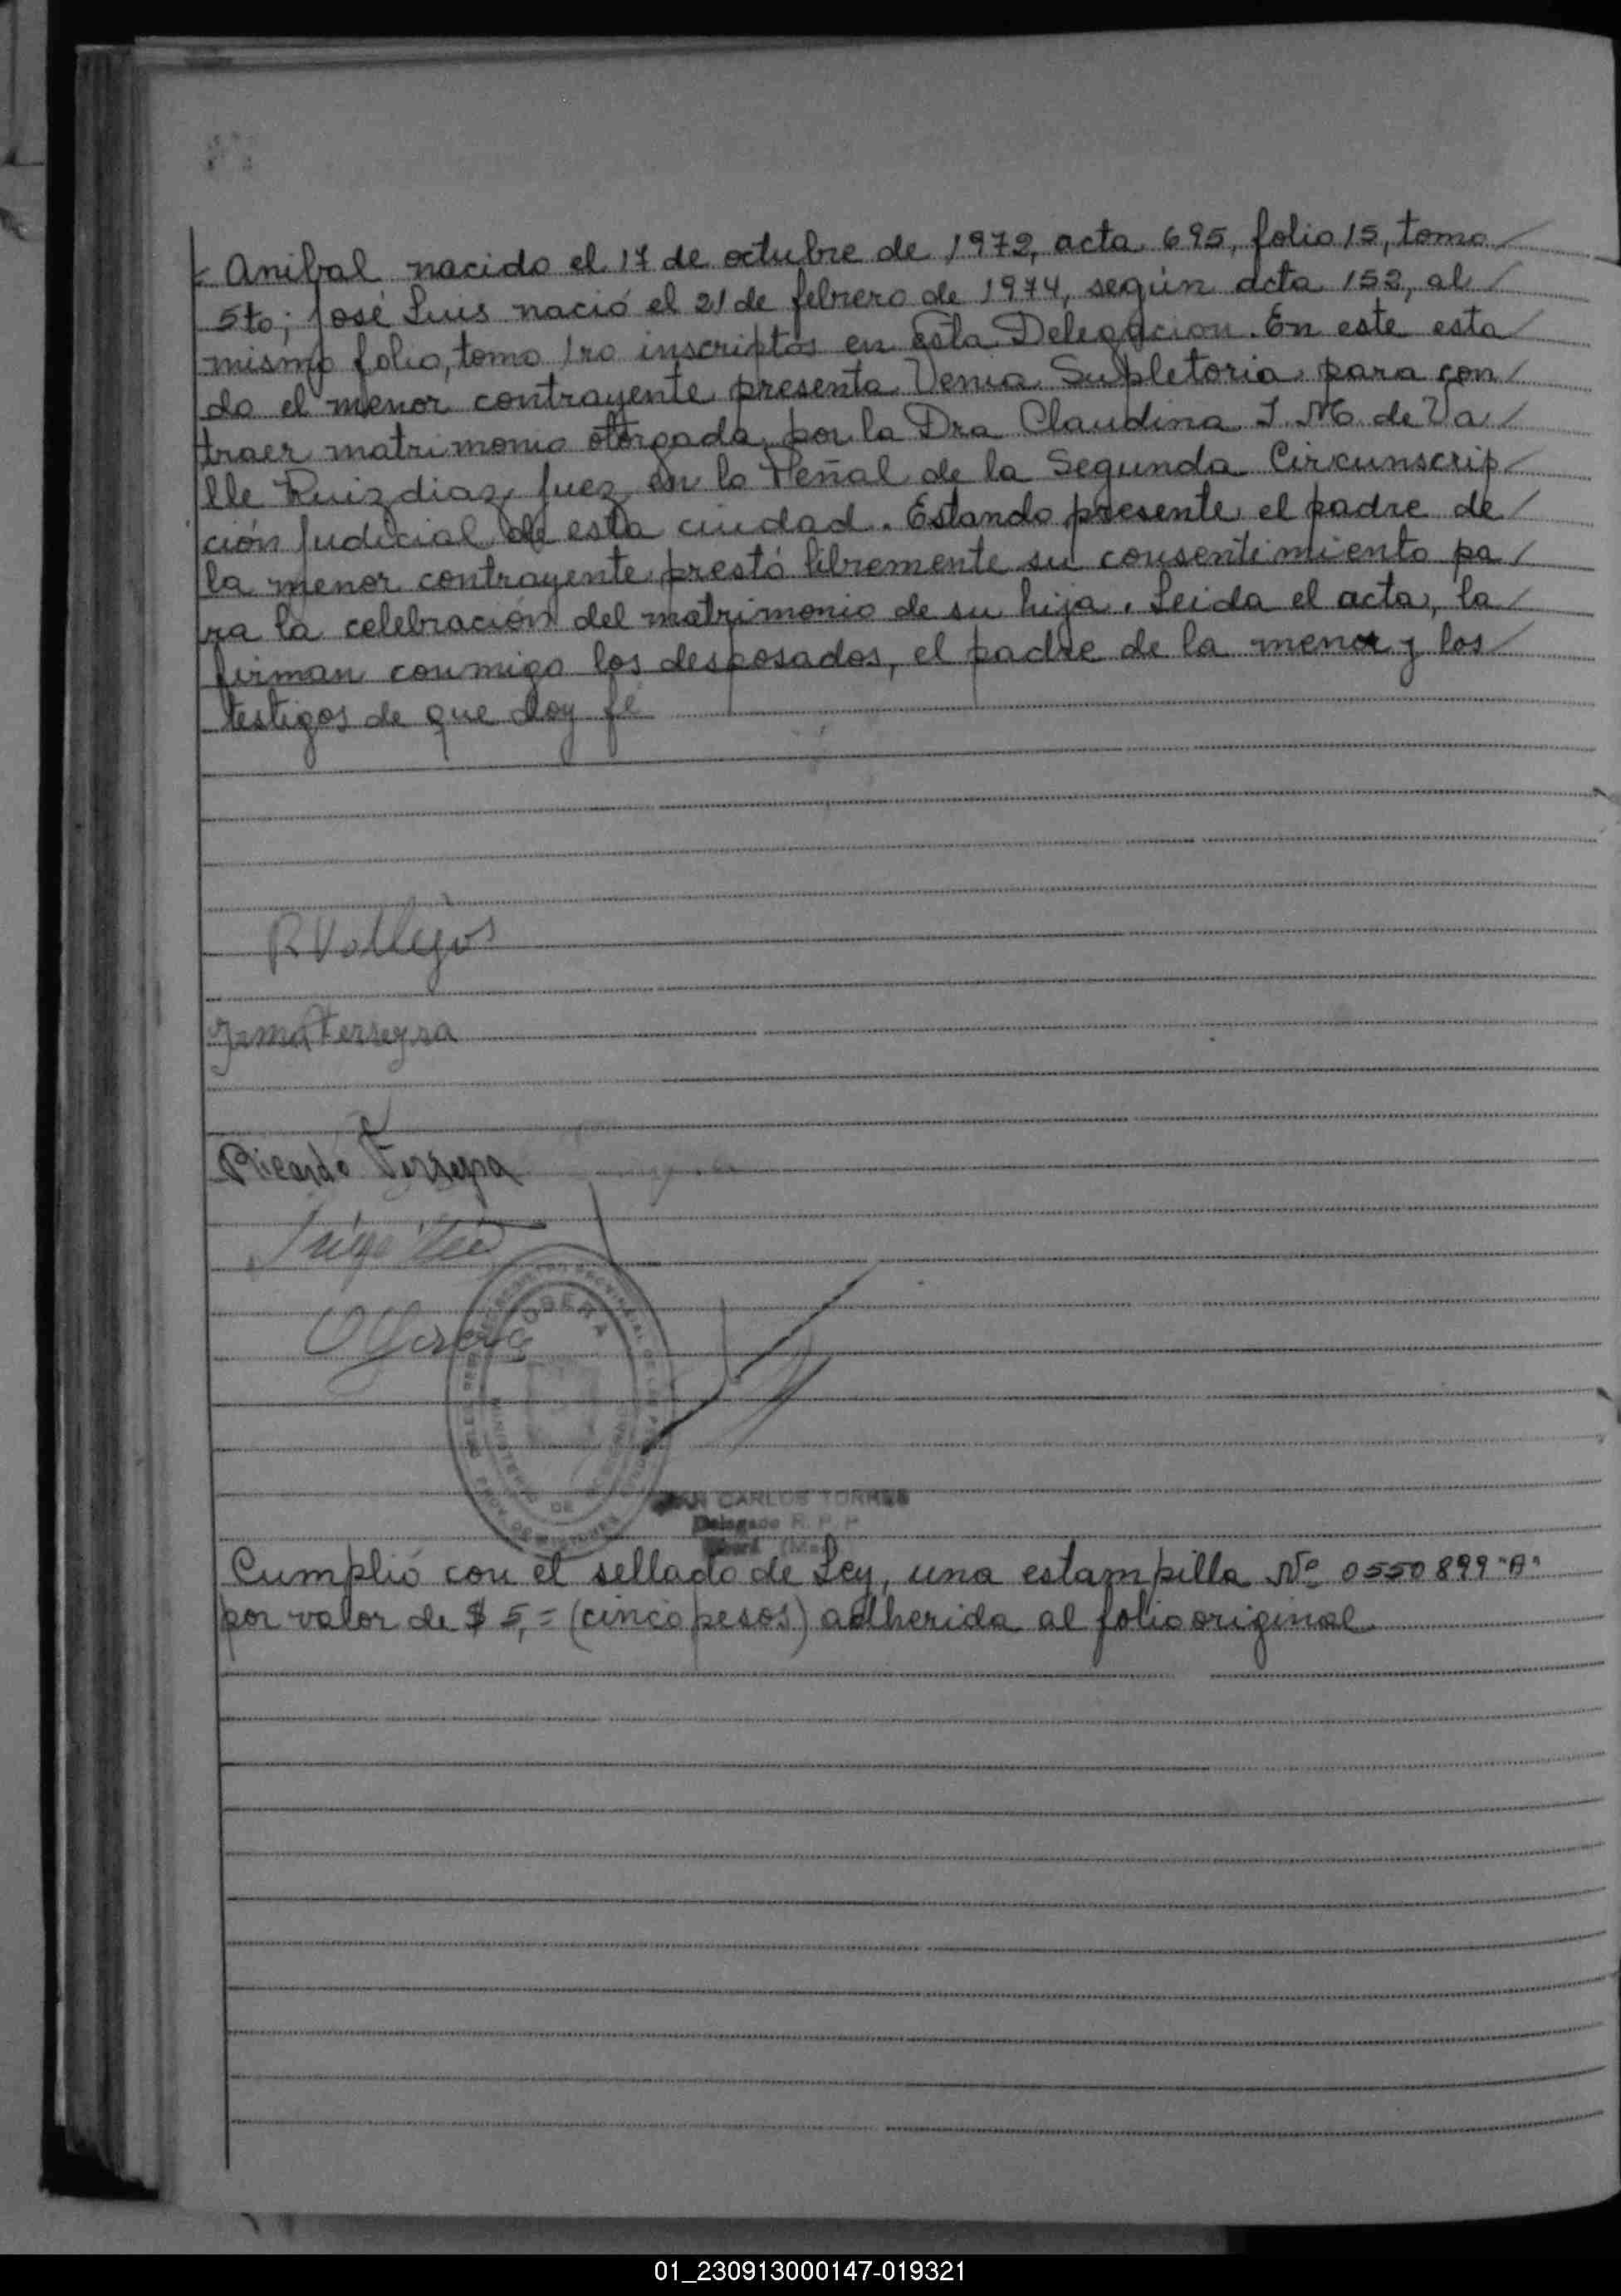 Anibal nacido el 17 de octubre de 1972, acta 695, folio 15, tomo /
5to; José Luis nació el 21 de febrero de 1974, según acta 152, al /
mismo folio, tomo 1ro inscriptos en Esta Delegacion. En este esta /
do el menor contrayente presenta Venia Supletoria para con /
traer matrimonio otorgada por la Dra Claudina I. M. de Va /
lle Ruizdiaz, Juez en lo Penal de la Segunda Circunscrip /
ción Judicial de esta ciudad. Estando presente el padre de /
la menor contrayente prestó libremente su consentimiento pa /
ra la celebración del matrimonio de su hija. Leida el acta, la /
firman conmigo los desposados, el padre de la menor y los /
testigos de que doy fé
R Vallejos
Irma Ferreyra
Ricardo Ferreyra
OBERA
MINISTERIO DE
PROV. DE MISIONES
CARLOS TORRES
Delegado R. P. P.
Cumplió con el sellado de Ley, una estampilla Nº 0550899 "A"
por valor de $ 5,= (cinco pesos) adherida al folio original
01_230913000147-019321